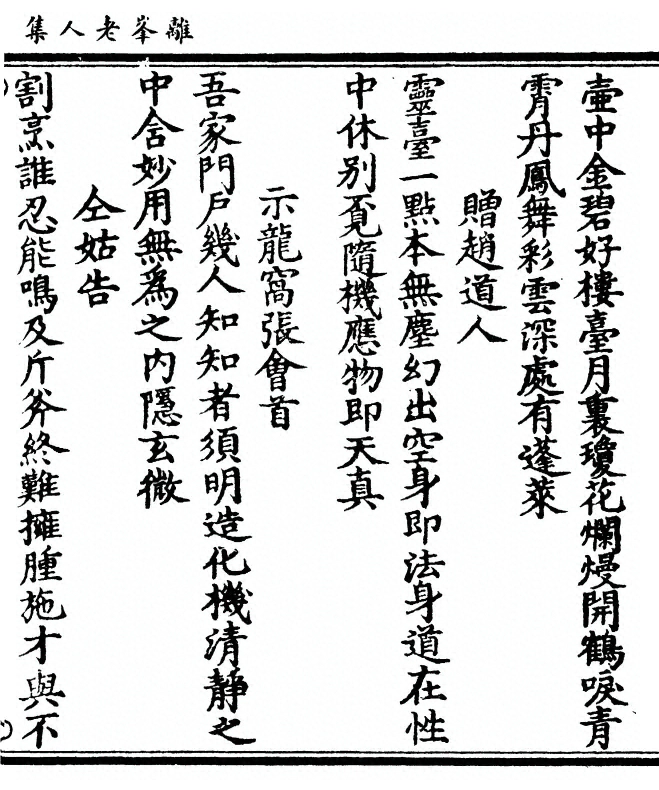 離峯老人集
壷中金碧好樓臺月裏瓊花爛熳開鶴唳青
霄丹鳳舞彩雲深處有蓬萊
贈趙道人
靈臺一點本無塵幻出空身即法身道在性
中休别覔隨機應物即天真
示龍窩張會首
吾家門戸幾人知知者須明造化機清靜之
中含妙用無為之内隱玄微
仝姑告
割烹誰忍能鳴及斤斧終難擁腫施才與不